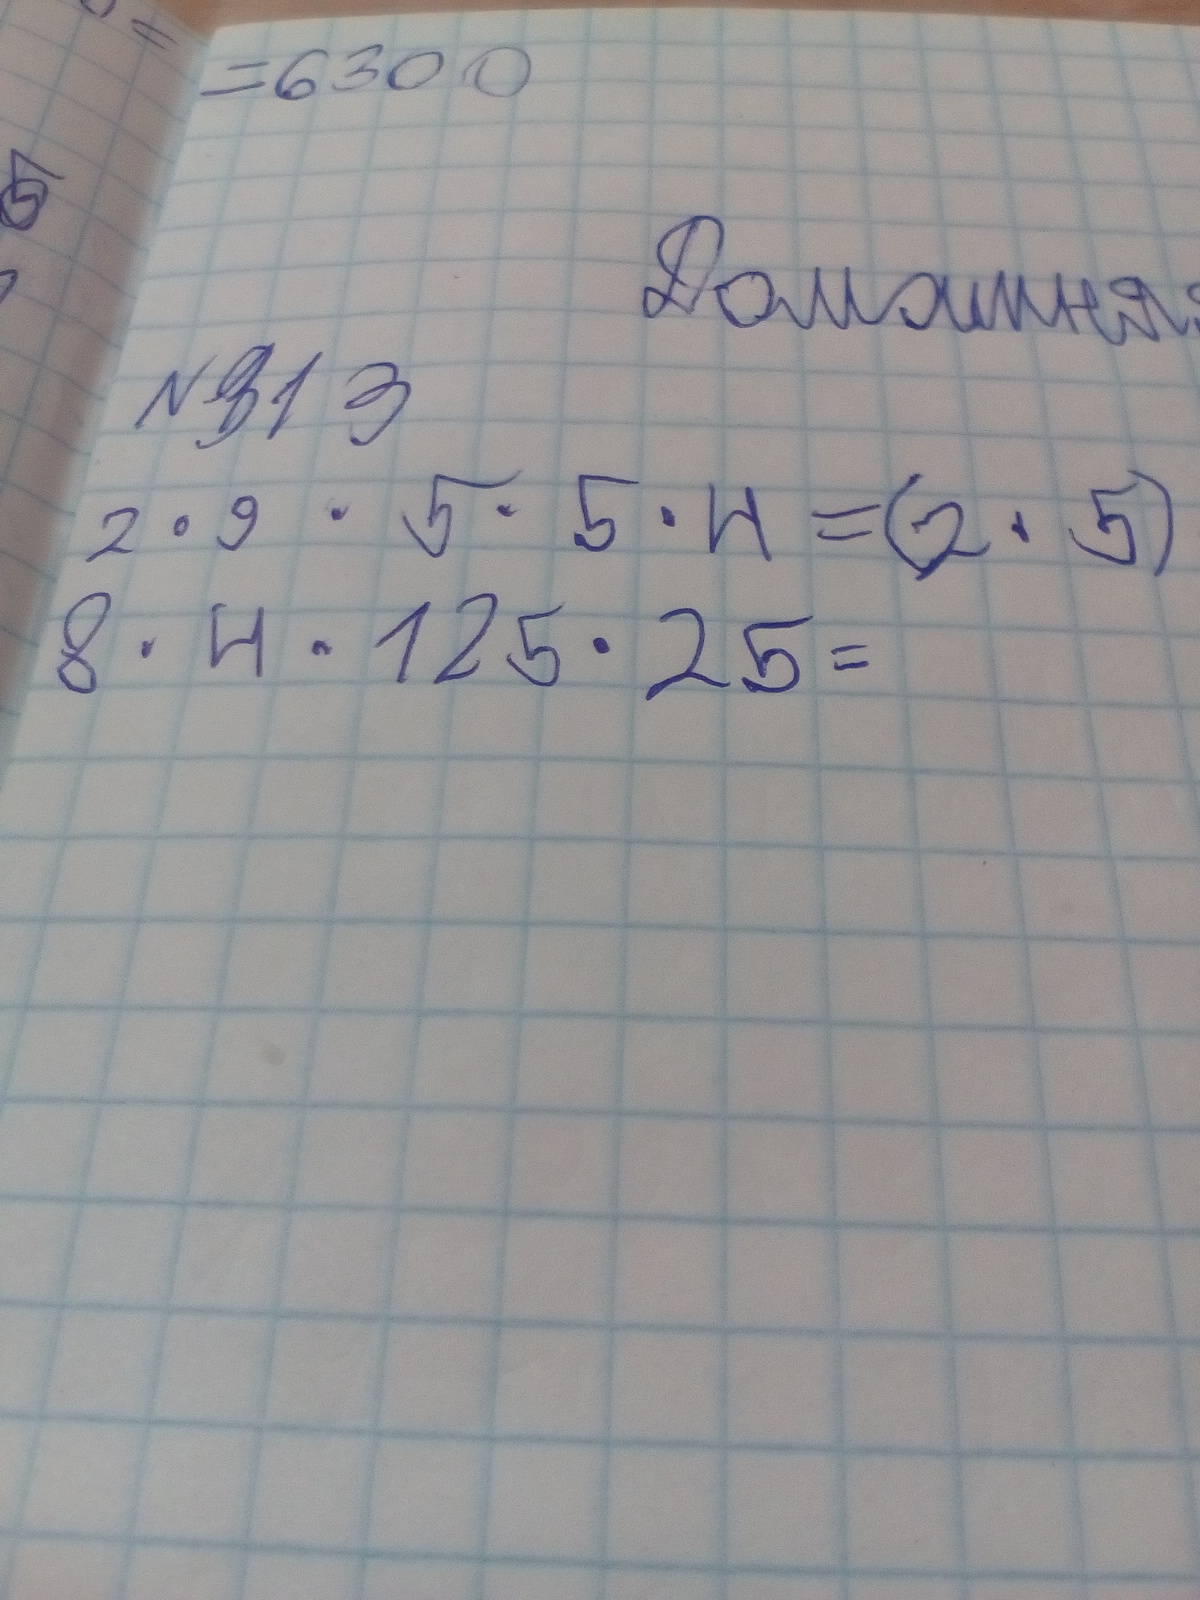 =6300
Домашняя
№313
2·9·5·5·4=(2·5)
8·4·125·25=